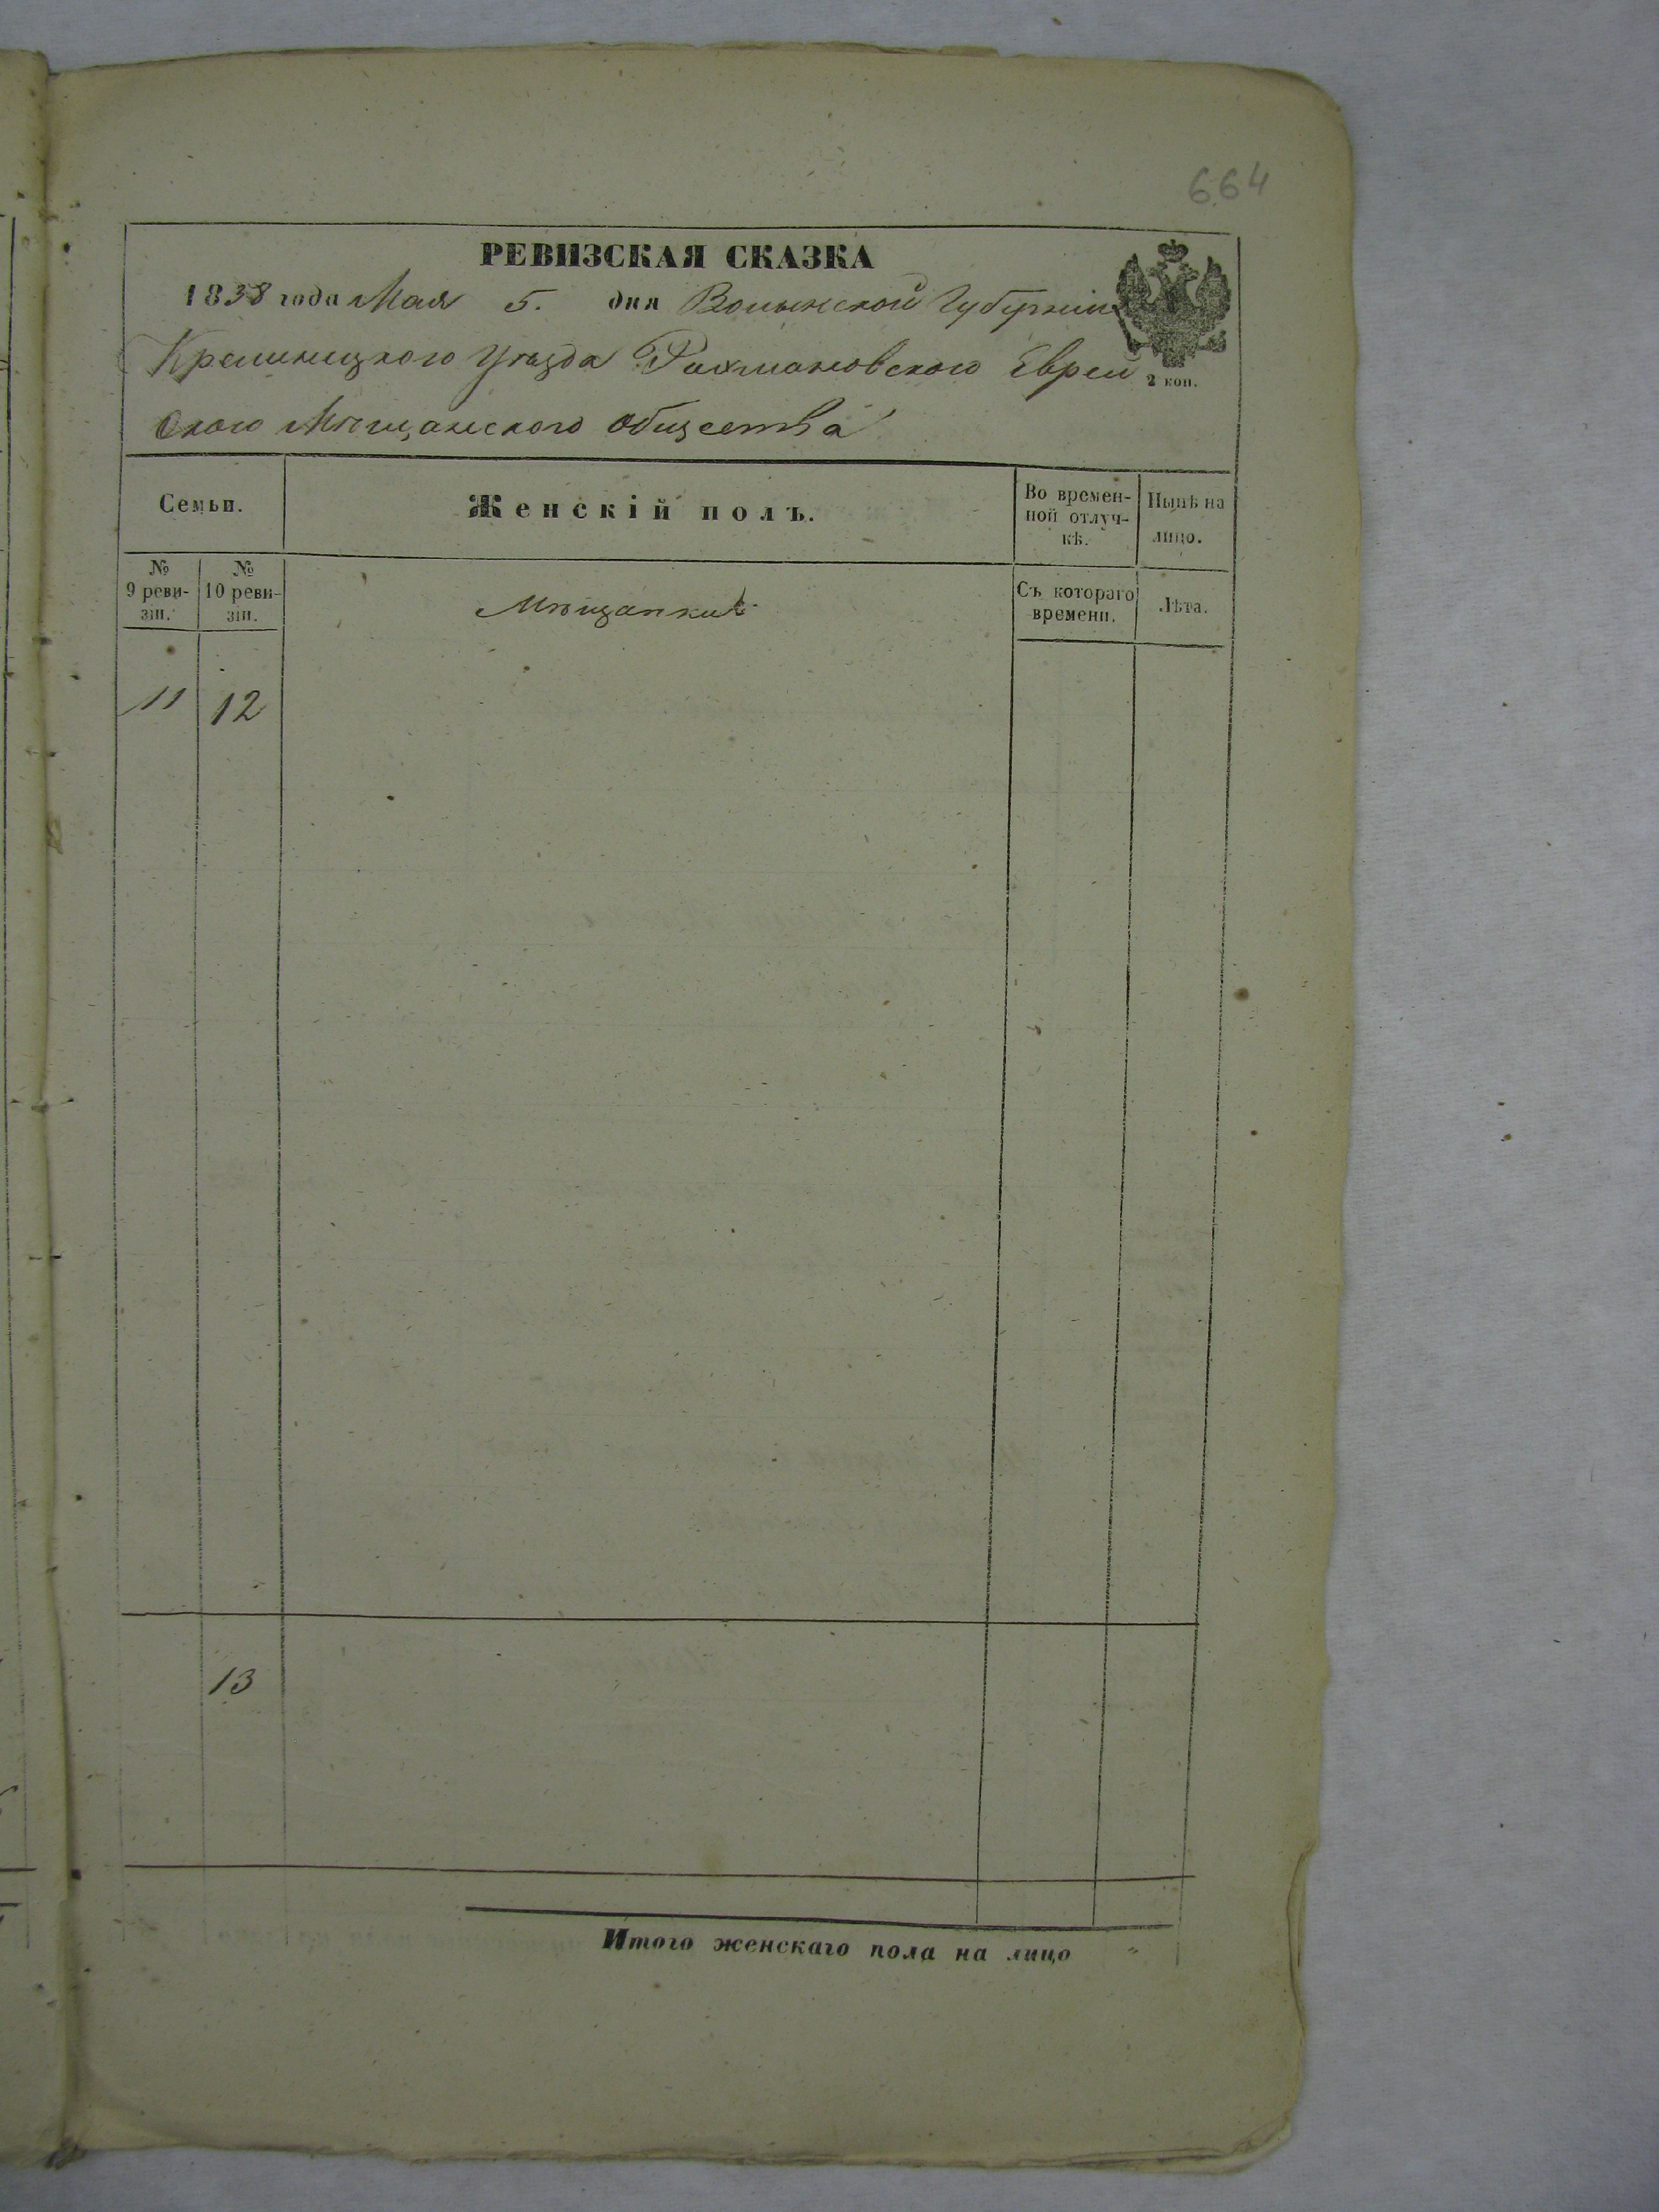 664
РЕВИЗСКАЯ СКАЗКА
1858 года Мая 5. дня Волынской Губерніи
Кременецкого Уѣзда Рахмановского Еврей
2 коп.
ского Мѣщанского общества
Семьи.
Женскій полъ.
Во времен-
ной отлуч-
кѣ.
Нынѣ на
лицо.
№
9 реви-
зіи.
№
10 реви-
зіи.
Мѣщанки
Съ котораго
времени.
Лѣта.
11 12
13
Итого женскаго пола на лицо "